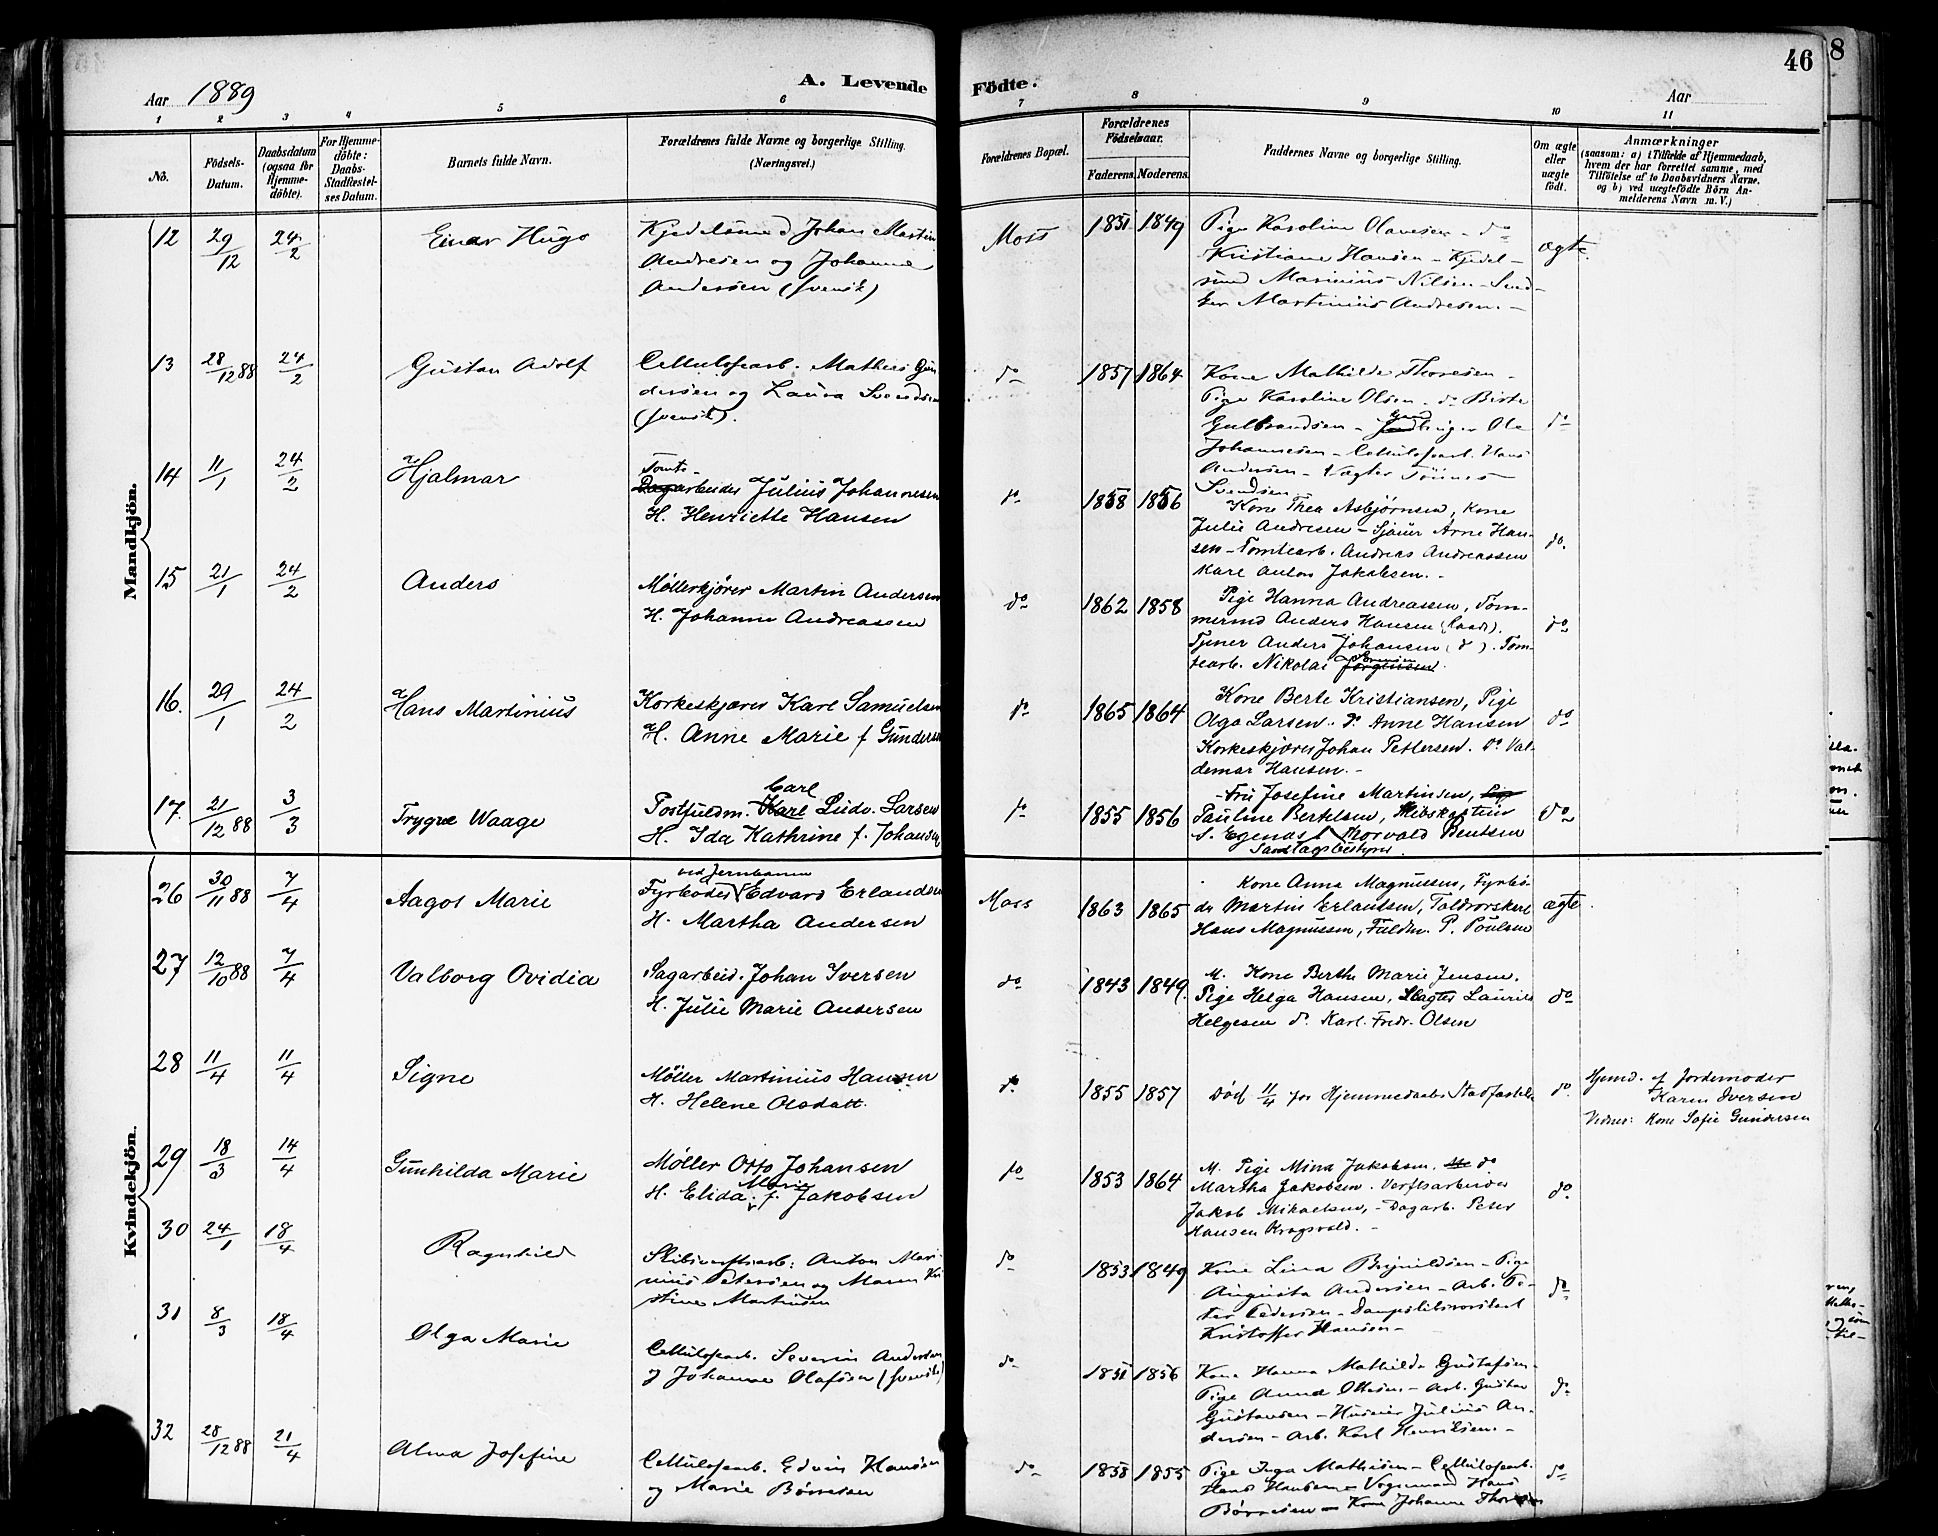 46
8
Aar 1889
A. Levende Födte.
Aar
1 2 3 4 5 6 7 8 9 10 11
No.
Födsels-Datum.
Daabsdatum (ogsaa for Hjemme-döbte).
For Hjemme-döbte: Daabs-Stadfæstel-ses Datum.
Barnets fulde Navn.
Forældrenes fulde Navne og borgerlige Stilling. (Næringsvei.)
Forældrenes Bopæl.
Forældrenes Födselsaar.
Faderens. Moderens.
Faddernes Navne og borgerlige Stilling.
Om ægte eller uægte födt.
Anmærkninger
(saasom: a) i Tilfælde af Hjemmedaab,
hvem der har forrettet samme, med
Tilföielse af to Daabsvidners Navne,
og b) ved uægtefödte Börn An-
melderens Navn m. V.)
Mandkjön.
12 29/12 24/2 Einar Hugo
Kjedelsmed Johan Martin
Andresen og Johanne
Andersen (svensk)
Moss 1851 1849
Pige Karoline Olavesen - do
Kristiane Hansen - Kjedel-
smed Marinius Nilsen -
Martinius Andresen. -
ægte.
13 28/12 88 24/2 Gustav Adolf
Cellulosearb. Mathias Gun
dersen og Laura Svendsen
(svensk).
do 1857 1864
Kone Mathilde Thoresen -
Pige Karoline Olsen - do Birte
Gulbrandsen - Ole
Johannesen - Cellulosearb. Hans
Andersen - Vagter Tönnes
Svendsen
do
14 11/1 24/2 Hjalmar
Tomte-
Dagarbeider Julius Johannesen
H. Henriette Hansen
do 1858 1856
Kone Thea Asbjørnsen, Kone
Julie Andresen - Sjauer Arne Han-
sen - Tomtearb. Andreas Andreassen
Karl Anton Jakobsen. -
do.
15 21/1 24/2 Anders
Møllerkjører Martin Andersen
H. Johanne Andreassen
do 1862 1858
Pige Hanna Andreassen, Tøm-
mermd Anders Hansen (Raade).
Tjener Anders Johansen (do). Tom-
tearb. Nikolai Jørgensen.
do
16. 29/1 24/2 Hans Martinius
Korkeskjærer Karl Samuelsen
H. Anne Marie f Gunders
do 1865 1864
Kone Berte Kristiansen, Pige
Olga Larsen. do Anne Hansen
Korkeskjærer Johan Pettersen. do Val-
demar Hansen. -
do
17. 21/12 88 3/3 Trygve Waage
Carl
Postfuldm. Karl Ludv. Larsen
H. Ida Kathrine f. Johansen
do 1855 1856
Fru Josefine Martinsen,
Pauline Bertelsen, Skibskaptein
S. Egenæs, Thorvald Bentsen
Sandtagsbestyrer
do
Kvindekjön.
26 30/11 88 7/4 Aagot Marie
ved Jernbanen
Fyrbøder Edvard Erlandsen
H. Martha Andersen
Moss 1863 1865
Kone Anna Magnussen, Fyrbø-
der Martin Erlantsen, Toldrorskarl
Hans Magnussen, Fuldm. P. Poulsen
ægte.
27 12/10 88 7/4 Valborg Ovidia
Sagarbeid. Johan Iversen
H. Julie Marie Andersen
do 1843 1849.
M. Kone Berthe Marie Jensen.
Pige Helga Hansen, Slagter Laurits
Helgesen do. Karl Fredr. Olsen
do
28 11/4 11/4 Signe
Møller Martinius Hansen
H. Helene Olsdatt.
do 1855 1857
Død 11/4 før Hjemmedaabs Stadfæstelse
do.
Hjemd. af Jordemoder
Karen Iversen
Vidner: Kone Sofie Gundersen
29 18/3 14/4 Gunhilda Marie
Møller Otto Johansen
Marie
H. Elida f. Jakobsen
do 1853 1864
M. Pige Mina Jakobsen. do
Martha Jakobsen. Verftsarbeider
Jakob Mikaelsen, - Dagarb. Peter
Hansen Kragsvold. -
do.
30 24/1 18/4 Ragnhild
Skibsverftsarb: Anton Mari-
nius Petersen og Maren Kri
stine Martinsen
do 1853 1849
Kone Lina Brynildsen - Pige
Augusta Andersen - Arb. Pe-
ter Pedersen -
Kristoffer Hansen -
do
31 8/3 18/4 Olga Marie
Cellulosearb. Severin Andersen
og Johanne Olafsen (svensk)
do 1851 1856
Kone Hanna Mathilde Gustafsen -
Pige Anna Ottesen - Arb. Gustav
Gustavsen - Huseier Julius An-
dersen - Arb. Karl Henriksen. -
do
32 28/12 88 21/4 Alma Josefine
Cellulosearb. Edvin Hansen
og Marie Børresen
do 1858 1855
Pige Inga Mathisen - Cellulosearb.
Hans Hansen - Vognmand Hans
Børresen - Kone Johanne Thoresen
do